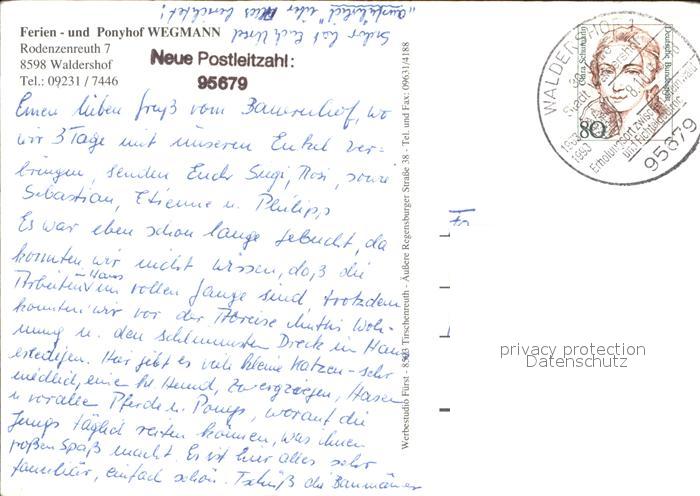 Ferien - und Ponyhof WEGMANN
Rodenzenreuth 7
8598 Waldershof
Tel.: 09231 / 7446
Neue Postleitzahl:
95679
Sicher hat Euch Ursel
"ausführlich" über alles berichtet!
Einen lieben Gruß vom Bauernhof, wo
wir 3 Tage mit unseren Enkel ver-
bringen, senden Euch Sugi, Rosi, sowie
Sebastian, Etienne u. Philipp
Es war eben schon lange gebucht, da
konnten wir nicht wissen, daß die
Arbeiten im Haus in vollem Gange sind trotzdem
konnten wir vor der Abreise Muttis Woh-
nung u. den schlimmsten Dreck im Haus
erledigen. Hier gibt es viele kleine Katzen - sehr
niedlich, eine kl. Hund, Zwergziegen, Hasen
u. vor alle Pferde u. Ponys, worauf die
Jungs täglich reiten können, was ihnen
großen Spaß macht. Es ist hier alles sehr
familiär, einfach schön. Tschüß die Baumänner
Werbestudio Fürst - 8593 Tirschenreuth - Äußere Regensburger Straße 38 - Tel. und Fax: 09631/4188
WALDERSHOF 1
30 Jahre
Stadt Waldershof
1963
1993
Erholungsort zwischen Steinwald
und Fichtelgebirge
95679
Clara Schumann
Deutsche Bundespost
80
privacy protection
Datenschutz